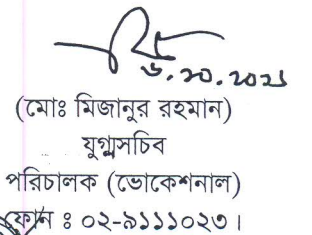 ৬.১০.২০২১
(মোঃ মিজানুর রহমান)
যুগ্মসচিব
পরিচালক (ভোকেশনাল)
ফোন ঃ ০২-৯১১১০২৩।